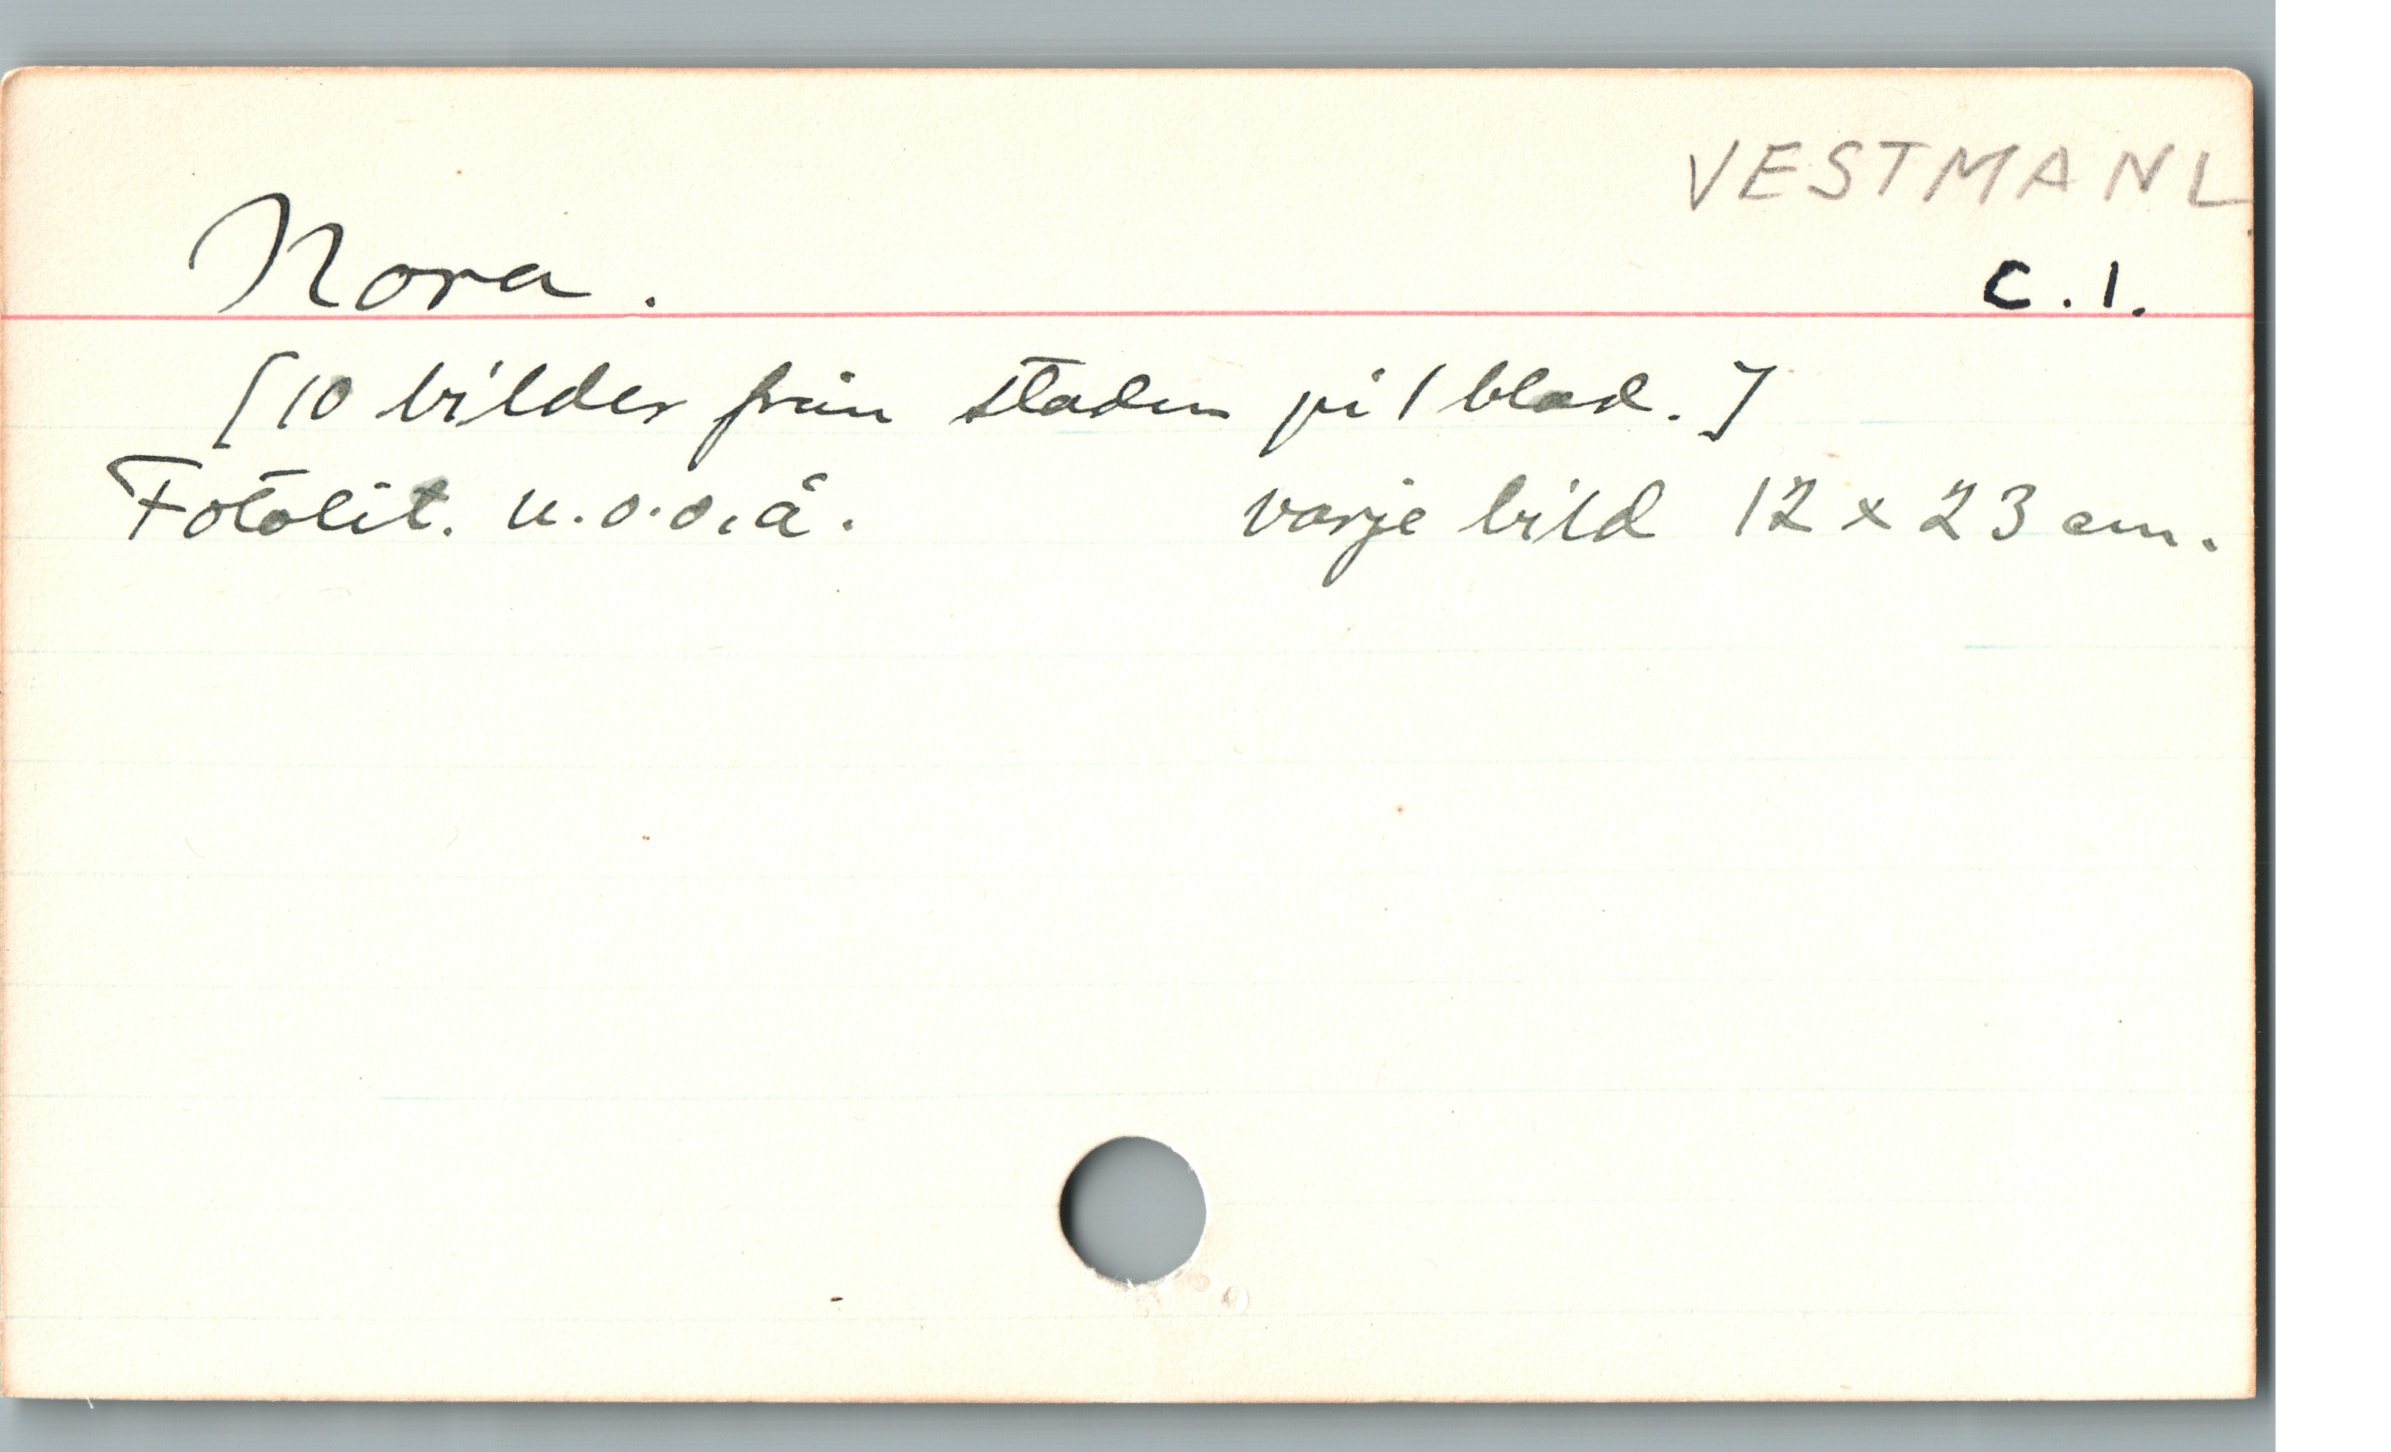 VESTMANL.
Nora.
C.1.
[10 bilder från staden på 1 blad.]
Fotolit. u.o.o.å. varje bild 12 x 23 cm.